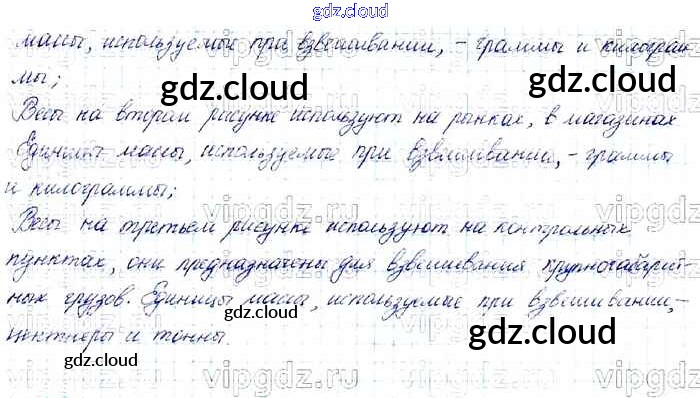 gdz.cloud
массы, используемые при взвешивании, – граммы и килограм-
мы;
gdz.cloud
gdz.cloud
Весы на втором рисунке используют на рынках, в магазинах
Единицы массы, используемые при взвешивании, – граммы
и килограммы;
vipgdz.ru
Весы на третьем рисунке используют на контрольных
пунктах, они предназначены для взвешивания крупногабарит-
ных грузов. Единицы массы, используемые при взвешивании, –
центнеры и тонны.
gdz.cloud
gdz.cloud
gdz.cloud
vipgdz.ru